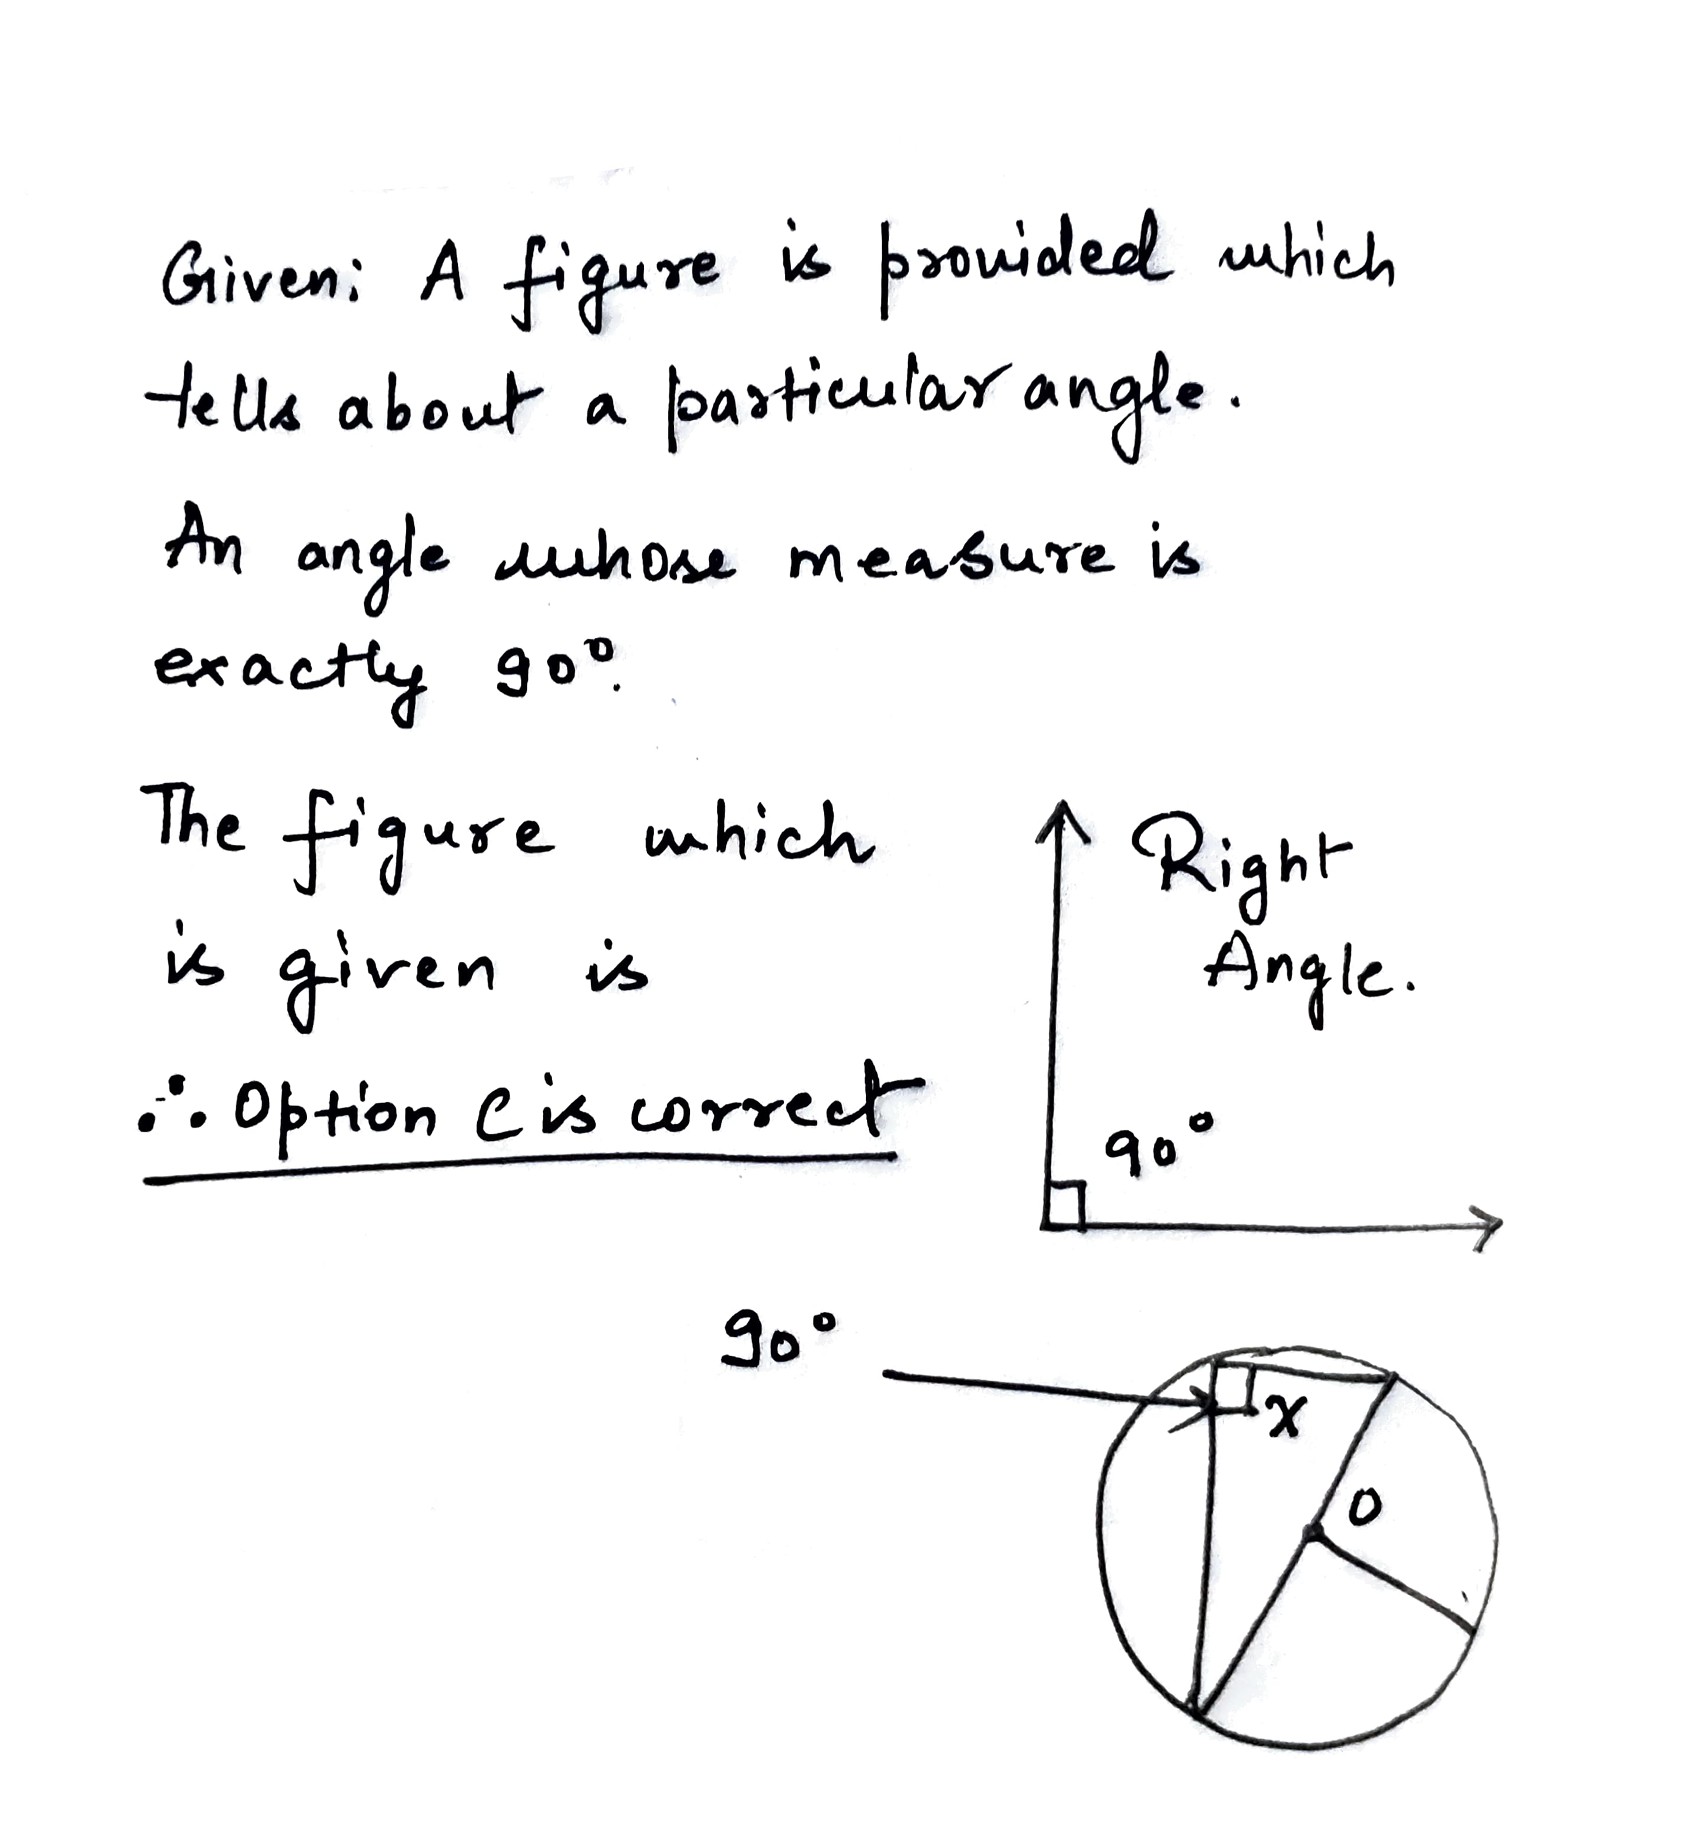 Given: A figure is provided which
tells about a particular angle.
An angle whose measure is
exactly 90°.
The figure which
is given is
∴ Option C is correct
Right
Angle.
90°
90°
x
O